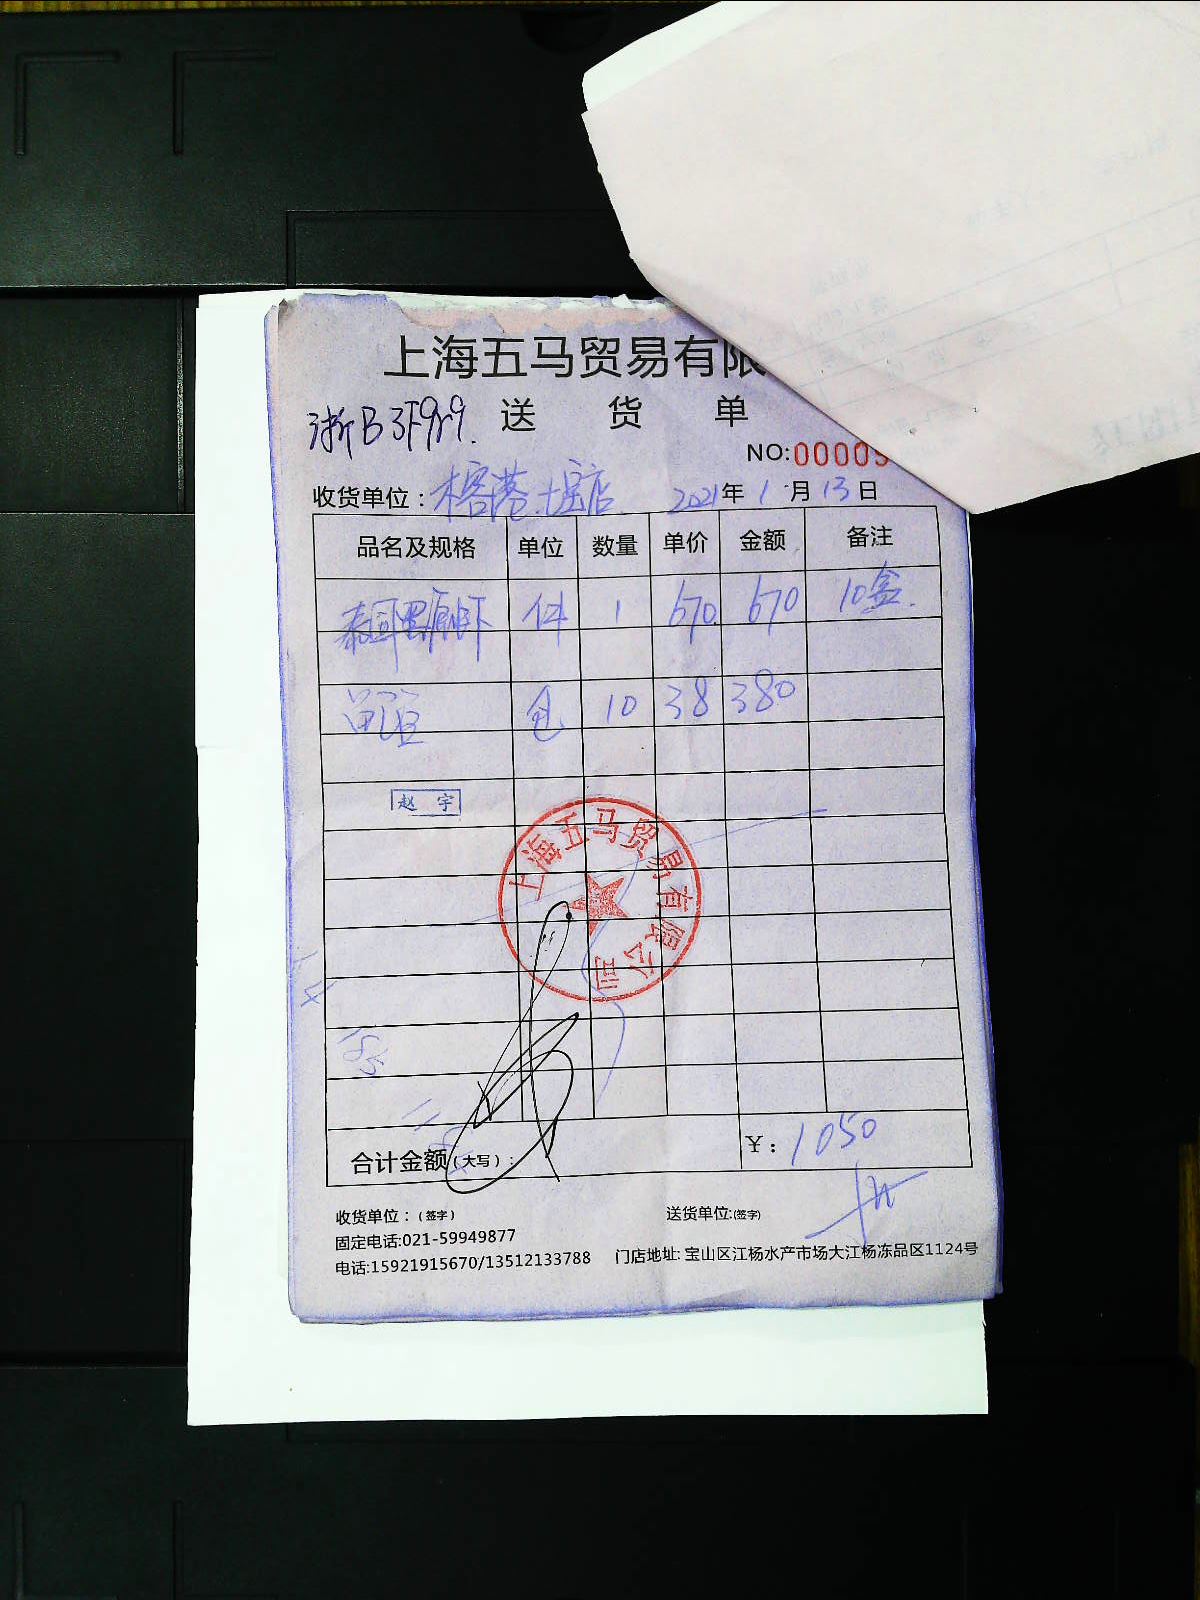 上海五马贸易有限
浙B3F9r9.
送 货 单
NO:00009
收货单位： 店 2021年1月13日
品名及规格 单位 数量 单价 金额 备注
泰国黑虎虾 件 1 670 670 10盒.
包 10 38 380
赵 宇
上海五马贸易有限公司
合计金额（大写）： ￥：1050
收货单位：（签字） 送货单位:(签字)
固定电话:021-59949877
电话:15921915670/13512133788 门店地址: 宝山区江杨水产市场大江杨冻品区1124号